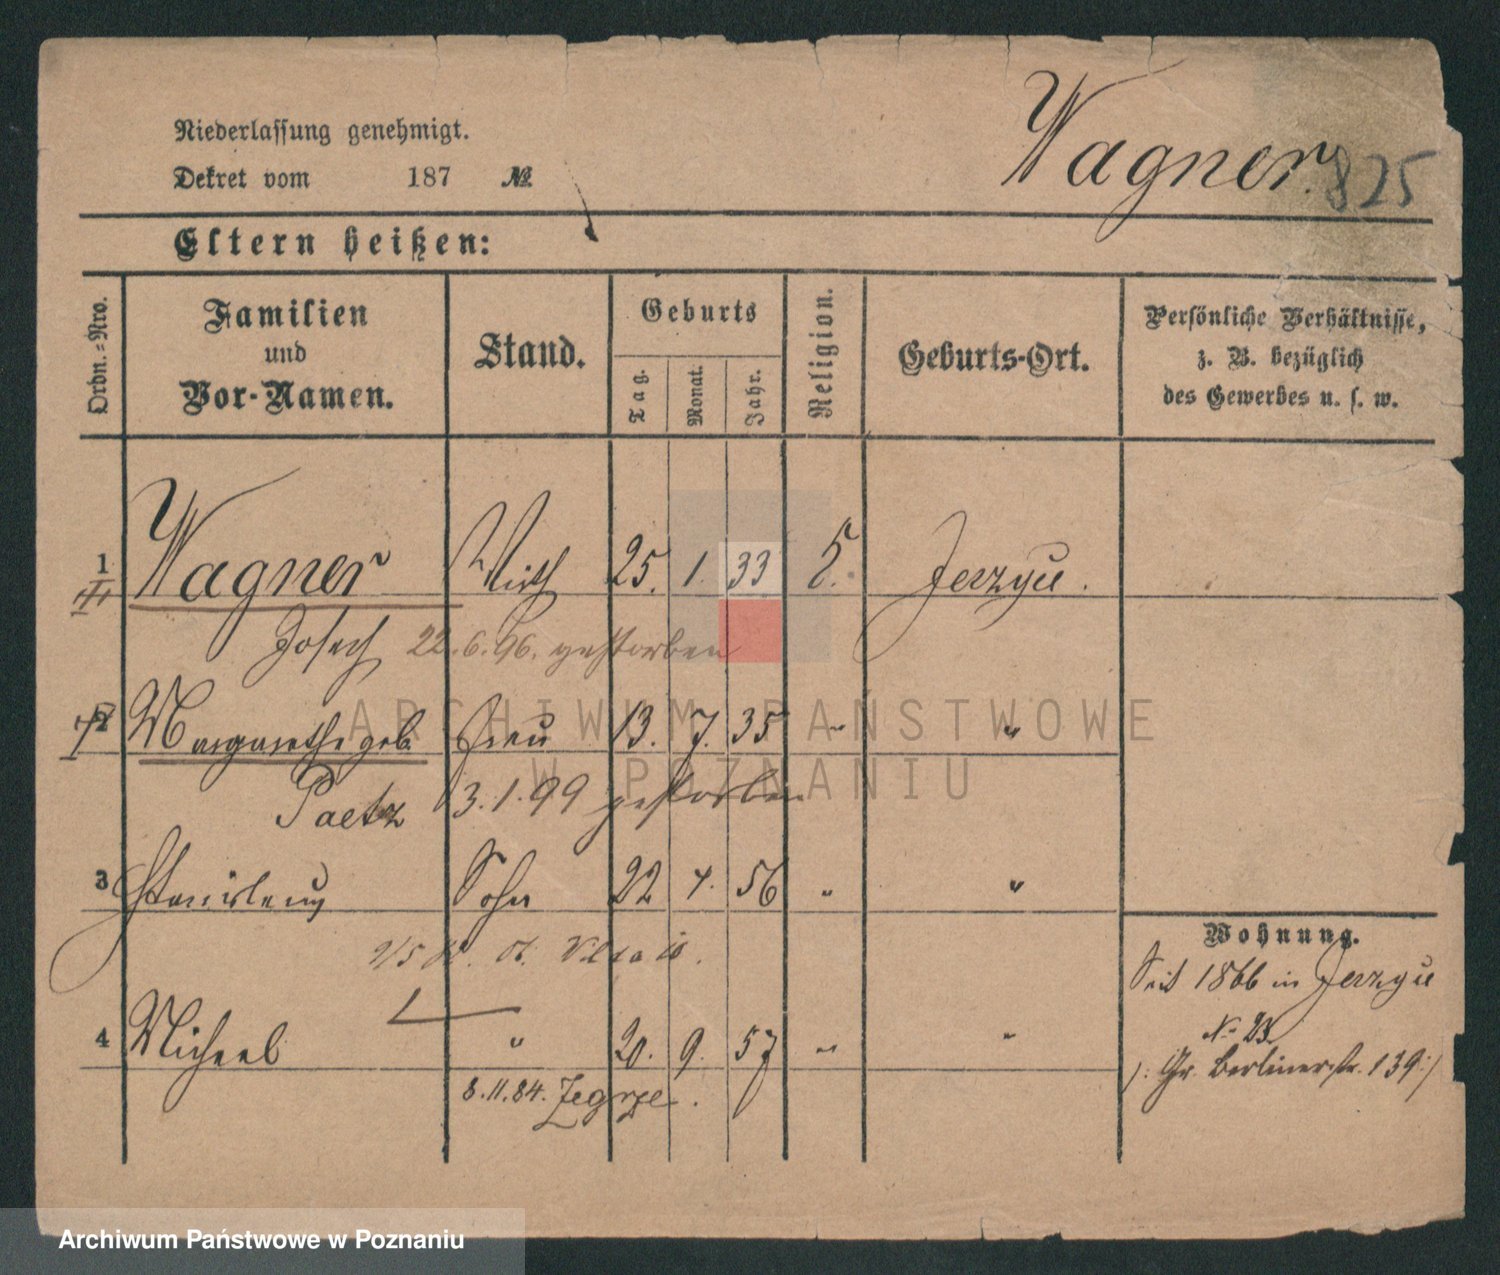 Wagner. 825
Niederlassung genehmigt.
Dekret vom 187 №
Eltern heißen:
Ordn.-Nro.
Familien
und
Vor-Namen.
Stand.
Geburts
Tag.
Monat.
Jahr.
Religion.
Geburts-Ort.
Persönliche Verhältnisse,
z. B. bezüglich
des Gewerbes u. s. w.
1 Wagner Wirth 25. 1. 33 Jerzyce.
Josef 22.6.96. gestorben
2 Margarethe geb Frau 13. 7. 35 " "
Paetz 3.1.99 gestorben
3 Stanislaus Sohn 22 4. 56 " "
4 Michael " 20. 9. 57 " "
8.11.84. Zegrze.
Wohnung.
Seit 1866 in Jerzyce
№ 23
/: Gr. Berlinerstr. 139 :/
ARCHIWUM PAŃSTWOWE
W POZNANIU
Archiwum Państwowe w Poznaniu